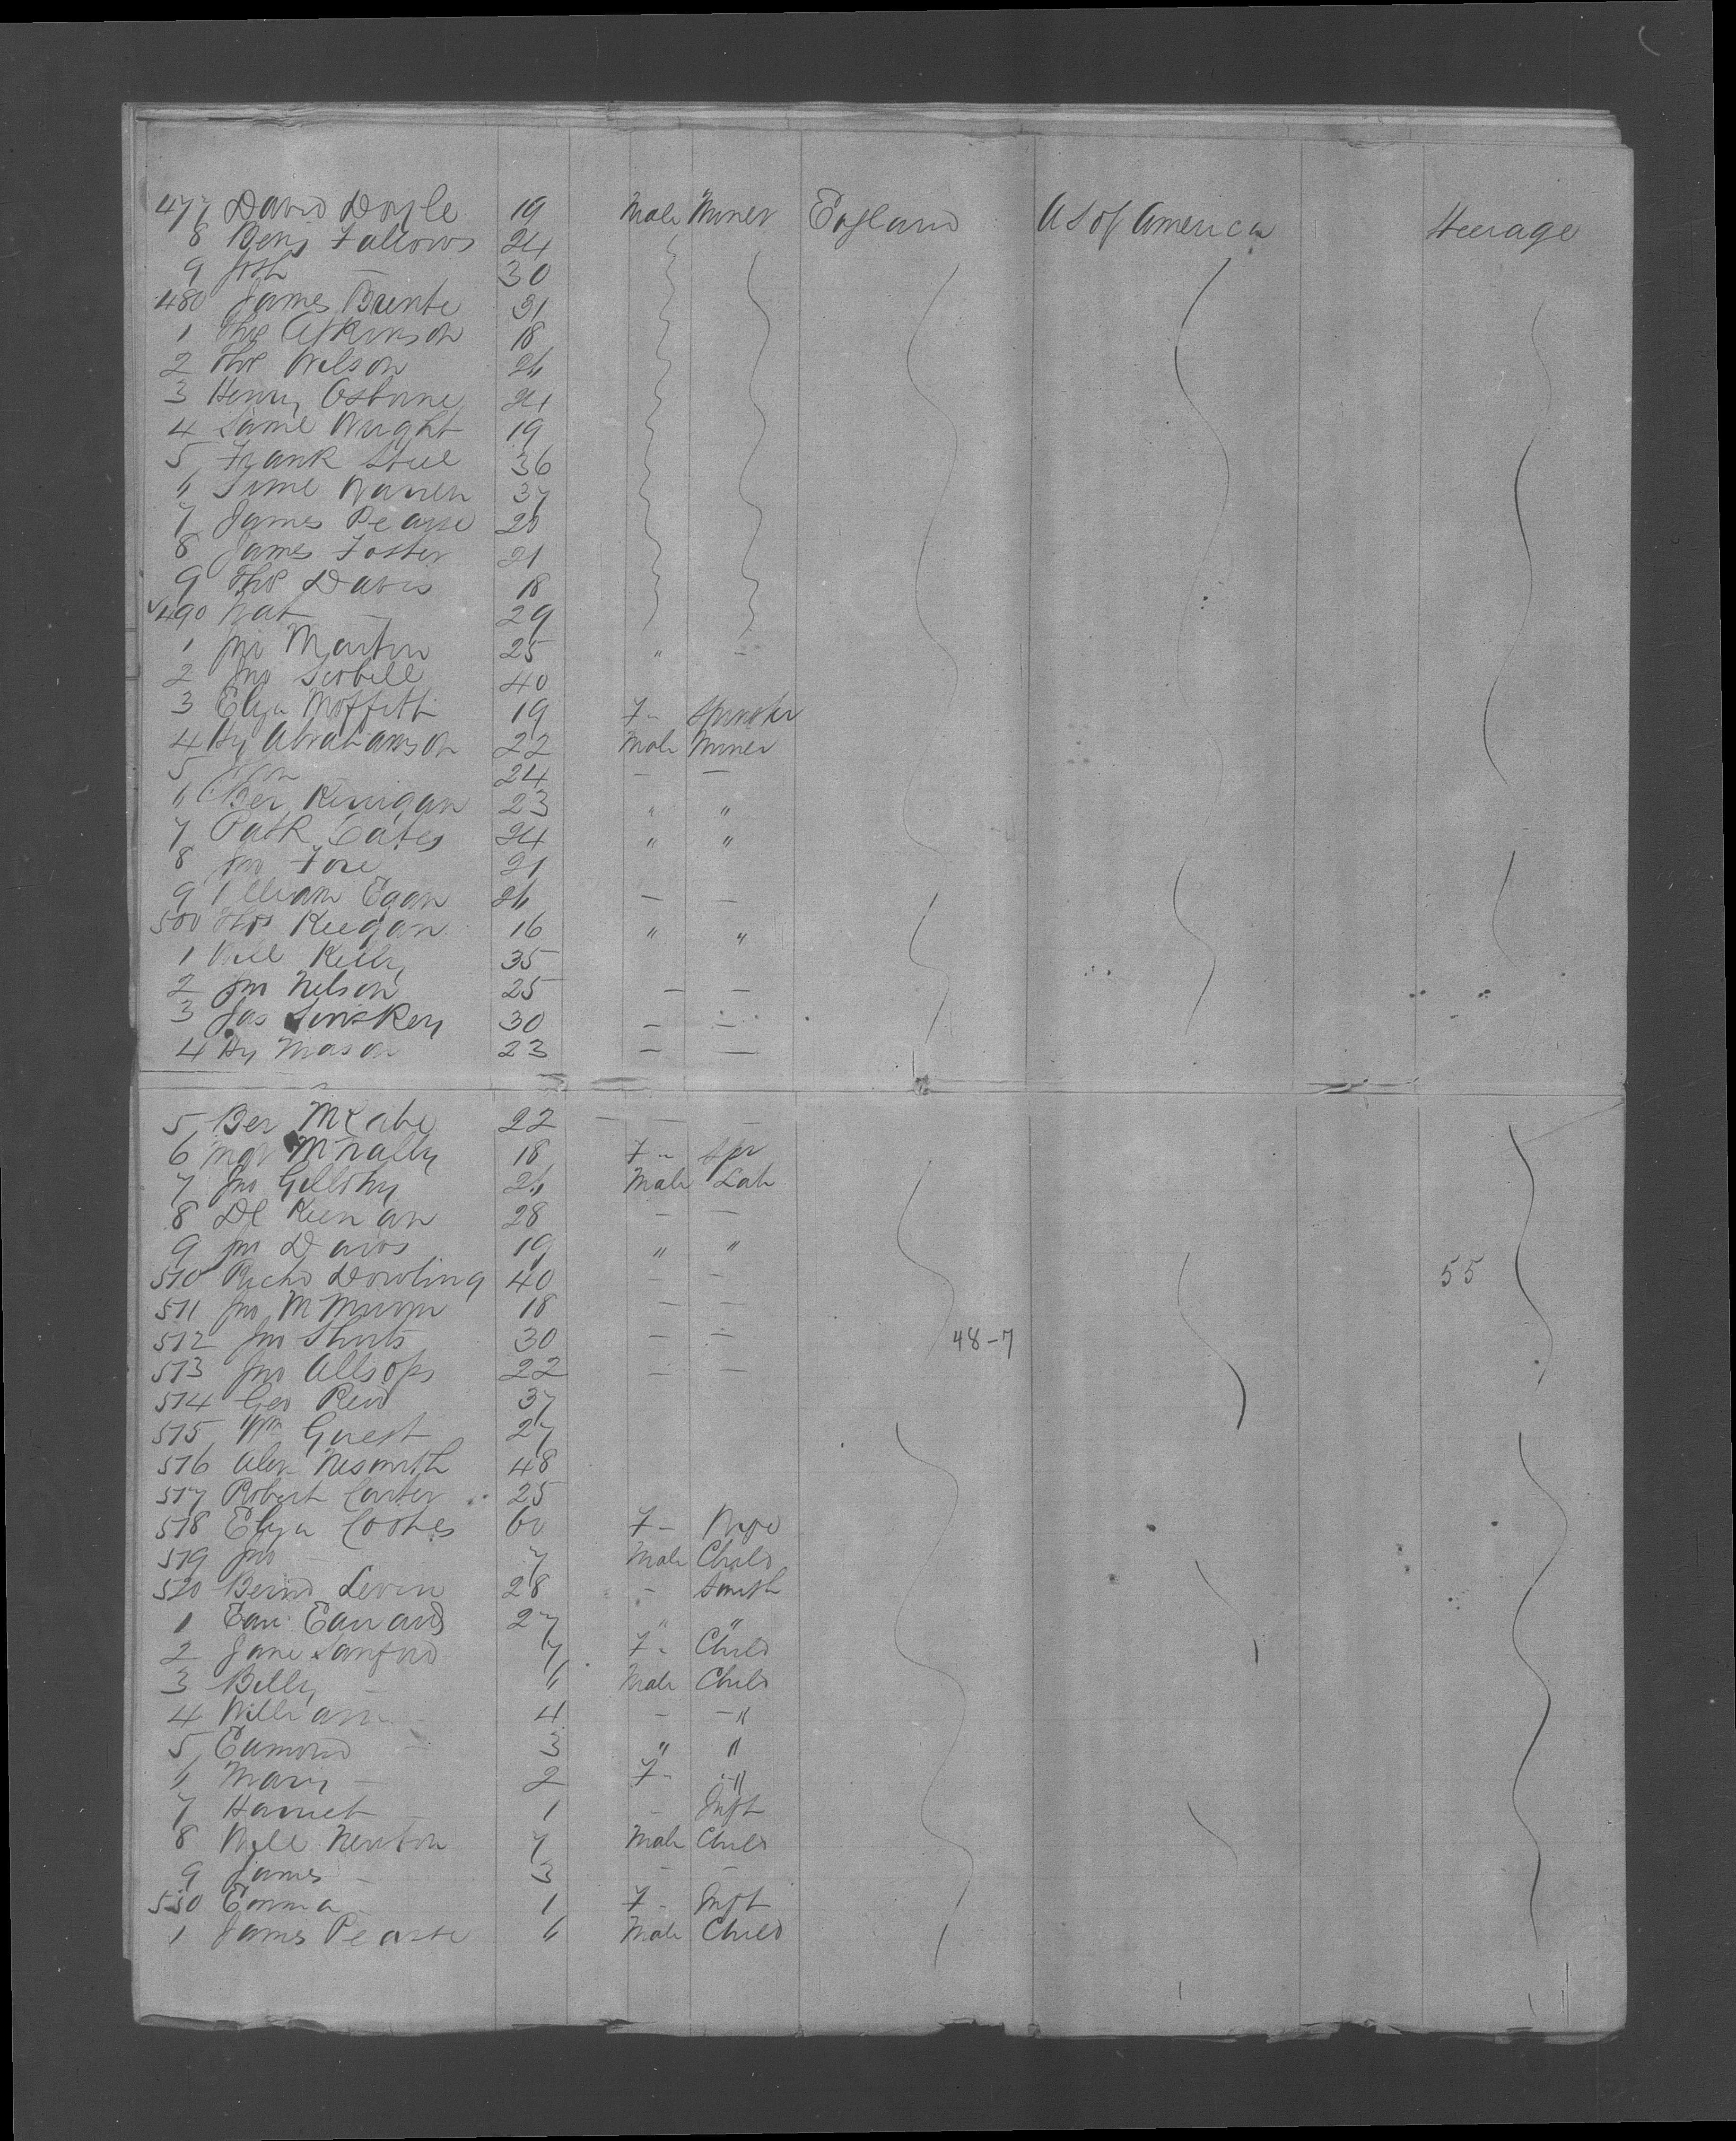 477 David Doyle 19 Male Miner England U S of America Steerage
8 Benj Fallows 24
9 Josh — 30
480 James Brente 31
1 Thos Atkinson 18
2 Thos Wilson 26
3 Henry Osborne 24
4 Saml Wright 19
5 Frank Steel 36
6 Warren 37
7 James Pearse 20
8 James Foster 21
9 Thos Davis 18
490 Nat — 29
1 Jno Martin 25 " —
2 Jno 40
3 Eliza Moffitt 19 F - Spinster
4 Hy Abrahamson 22 Male Miner
5 24 — —
6 Ber Kerrigan 23 " "
7 Patk Cates 24 " "
8 Jno 21
9 William Egan 26 — —
500 Thos Keegan 16 " "
1 Will Kelly 35
2 Jno Nelson 25 — —
3 Jas Liniskey 30 — —
4 Hy Mason 23 — —
5 Ber McCabe 22 — —
6 Mgt McNally 18 F - Spr
7 Jno Gilloby 26 Male Lab
8 Dl Keenan 28 — —
9 Jno Davis 19 " "
510 Richd Dowling 40 — — 55
511 Jno 18 — —
512 Jno Shorts 30 — — 48-7
513 Jno Allsops 22 — —
514 Geo Reid 37
515 Wm Guest 27
516 Alex Nesmith 48
517 Robert Carter 25
518 Eliza Cookes 60 F - Wife
519 Jno — 7 Male Child
520 Bernd Levin 28 - Smith
1 Edward 27 " "
2 Jane Sanford 7 F - Child
3 Billy — 6 Male Child
4 William — 4 - - "
5 Edmond — 3 " "
6 Mary — 2 F - - "
7 Harriet — 1 - Inft
8 Will Newton 7 Male Child
9 James — 3 - -
530 Emma 1 F - Inft
1 James Pearse 6 Male Child